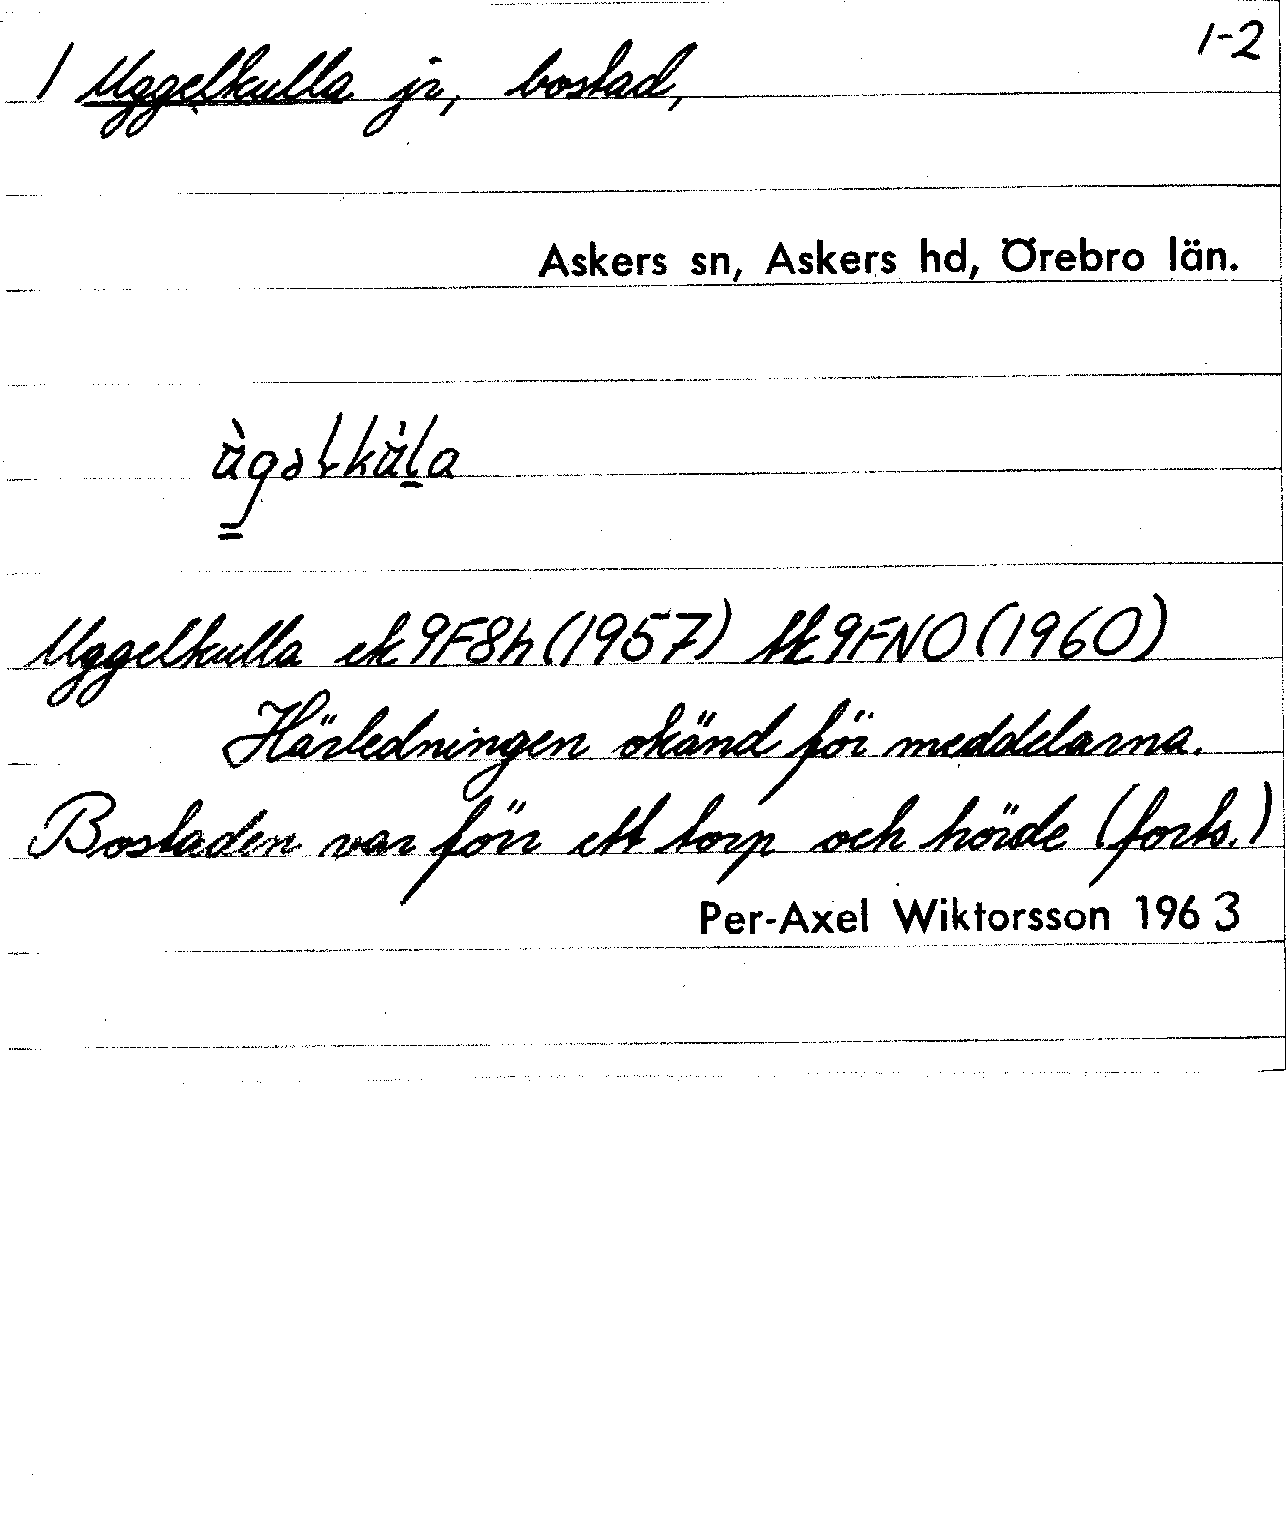 1-2
/ Uggelkulla jr, bostad,
Askers sn, Askers hd, Örebro län.
Uggelkulla ek 9F8h (1957) tk 9FNO (1960)
Härledningen okänd för meddelarna.
Bostaden var förr ett torp och hörde (forts.)
Per-Axel Wiktorsson 1963